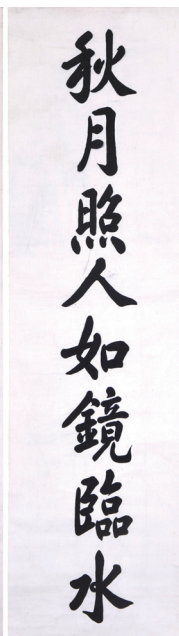 秋月照人如鏡臨水